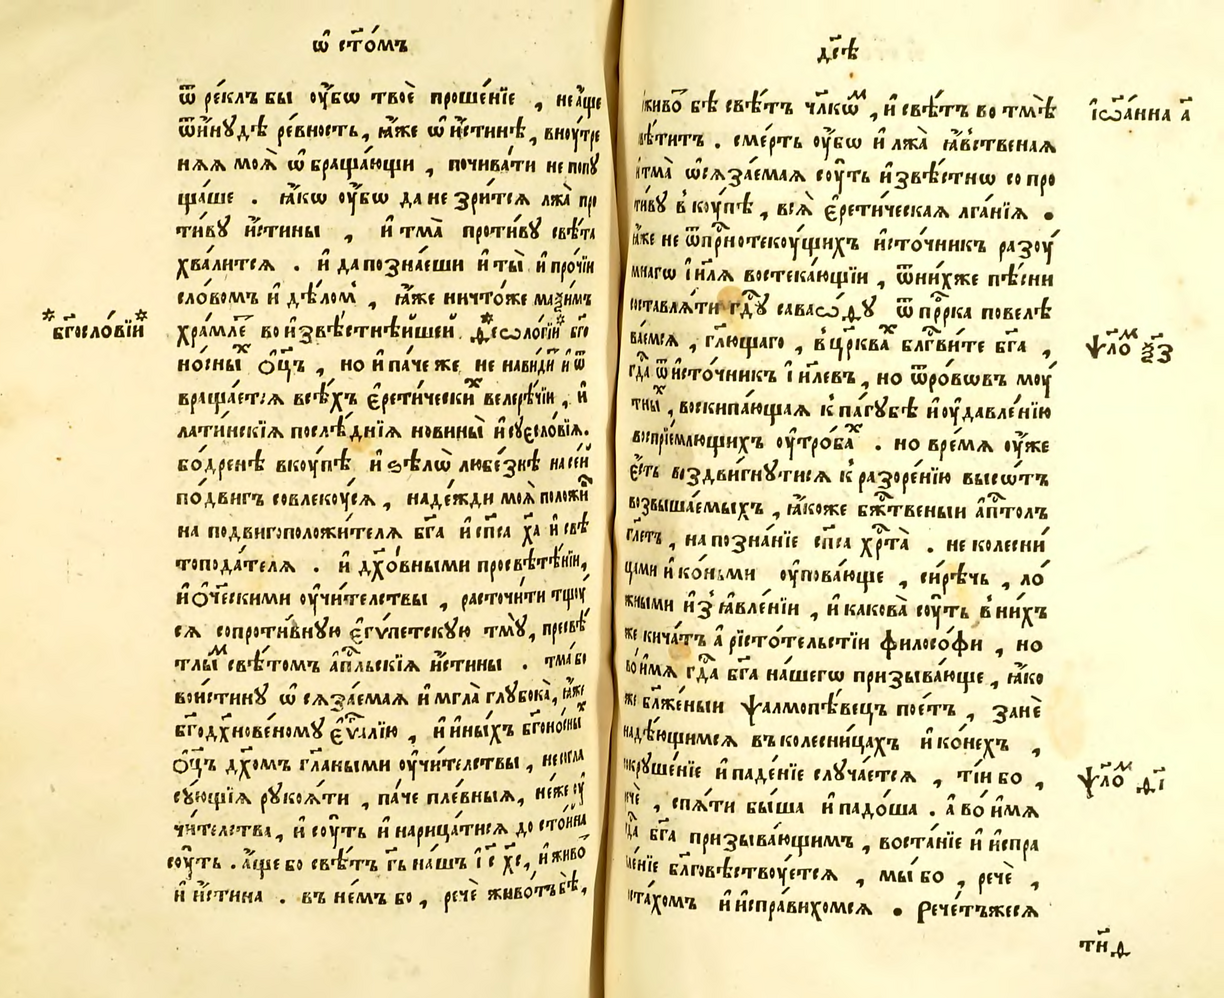 ѡ҆ ст҃о́мъ
ѿ ре́клъ бы ᲂу҆́бѡ твоѐ проше́нїе , не а҆́ще
ѿи҆нꙋ́дѣ ре́вность , ꙗ҆́же ѡ҆ и҆́стинѣ , внꙋ́тре
нѧѧ моѧ̀ ѡ҆браща́ющи , почива́ти не попꙋ
ща́ше . ꙗ҆́кѡ ᲂу҆́бѡ да не зри́тсѧ лжа̀ про
ти́вꙋ и҆́стины , и҆ тма̀ проти́вꙋ свѣ́та
хва́литсѧ . и҆ да позна́еши и҆ ты̀ и҆ про́чїи
сло́вомъ и҆ дѣ́ломъ , ꙗ҆́же ничто́же маѯи́мъ
хра́млѐ во и҆звѣ́стнѣишей *ѳеѡло́гїи* бг҃о
*бг҃осло́вїи*
но́сныⷯ ѻ҆ц҃ъ , но и҆ па́че же не нави́дѝ и҆ ѿ
враща́етсѧ всѣ́хъ є҆рети́ческиⷯ велерѣ́чїи , и҆
лати́нскїѧ послѣ́днїѧ новины̀ и҆ сꙋесло́вїѧ.
бо́дренѣ вкꙋ́пѣ и҆ ѕѣлѡ̀ любе́знѣ на се́й
по́двигъ совлекꙋ́сѧ , наде́жди моѧ̀ положи́
на подвигоположи́телѧ бг҃а и҆ сп҃са хⷭ҇а и҆ свѣ
топода́телѧ . и҆ дх҃о́вными просвѣте́нїи,
и҆ ѻ҆́ч҃ескими ᲂу҆чи́телствы , расточи́ти тщꙋ́
сѧ сопроти́внꙋю є҆гѵ́петскꙋю тмꙋ̀, пресвѣ́
тлыⷨ свѣ́томъ а҆пⷭ҇льскїѧ и҆́стины . тма́ бо
вои́стинꙋ ѡ҆сѧза́емаѧ и҆ мгла̀ глꙋбока̀, ꙗ҆́же
бг҃одꙋхнове́номꙋ є҆ѵⷢ҇лїю , и҆ и҆ны́хъ бг҃оно́сныⷯ
ѻ҆ц҃ъ дх҃омъ гл҃аными ᲂу҆чи́телствы , не согла
сꙋ́ющїѧ рꙋкоѧ́ти , па́че пле́вныѧ , не́же ᲂу҆
чи́телства , и҆ сꙋ́ть и҆ нарица́тисѧ досто́йна
сꙋ́ть . а҆́ще бо свѣ́тъ гⷭ҇ь на́шъ і҆с҃ хс҃, и҆ живо́
и҆ и҆́стина . въ не́мъ бо , речѐ живо́тъ бѣ̀,
дс҃ѣ
живо́ бѣ̀ свѣ́тъ чл҃кѡⷨ , и҆ свѣ́тъ во тмѣ̀
свѣ́титъ . сме́рть ᲂу҆́бѡ и҆ лжа̀ ꙗ҆́вственаѧ
и҆ тма̀ ѡ҆сѧза́емаѧ сꙋ́ть и҆звѣ́стнѡ сопро
ти́вꙋ вкꙋ́пѣ , всѧ̀ є҆рети́ческаѧ лга́нїѧ .
ꙗ҆́же не ѿ приснотекꙋ́щихъ и҆сто́чникъ разꙋ́
мнагѡ і҆и҃лѧ востека́ющїи , ѿ ни́хже пѣ́сни
составлѧ́ти гдⷭ҇ꙋ саваѡ́ѳꙋ ѿ прⷪ҇рка повелѣ
ва́емсѧ , гл҃ющаго , в цр҃кваⷯ блг҃ви́те бг҃а ,
гдⷭ҇а ѿ и҆сто́чникъ і҆и҃левъ , но ѿ ро́вѡвъ мꙋ́
тныⷯ , воскипа́ющаѧ к па́гꙋбѣ и҆ ᲂу҆давле́нїю
воспрїе́млющихъ ᲂу҆тро́баⷯ . но вре́мѧ ᲂу҆́же
є҆́сть воздви́гнꙋтисѧ к разоре́нїю высѡ́тъ
возвыша́емыхъ , ꙗ҆́коже бж҃твеныи а҆пⷭ҇толъ
гл҃етъ , на позна́нїе сп҃са хрⷭ҇та̀ . не колесни́
цами и҆ ко́ньми ᲂу҆пова́юще , си́рѣчь , ло́
жными и҆з̾ ꙗ҆вле́нїи , и҆ какова̀ сꙋ́ть в ни́хъ
же кича́тъ а҆рїсто́тельстїи філосо́фи , но
во и҆́мѧ гдⷭ҇а бг҃а на́шегѡ призыва́юще , ꙗ҆́ко
же бл҃же́ныи ѱалмопѣ́вецъ пое́тъ , занѐ
надѣ́ющимсѧ въ колесни́цахъ и҆ ко́нехъ ,
сокрꙋше́нїе и҆ паде́нїе слꙋча́етсѧ , ті́и бо ,
речѐ , спѧ́ти бы́ша и҆ падо́ша . а҆ во и҆́мѧ
гдⷭ҇а бг҃а призыва́ющимъ , воста́нїе и҆ и҆спра
вле́нїе блг҃овѣствꙋ́етсѧ , мы́ бо , речѐ ,
воста́хомъ и҆ и҆спра́вихомсѧ . Рече́тъжесѧ
і҆ѡа́нна а҃
ѱло́ⷨ ѯ҃з
ѱло́ⷨ ѳ҃і
тнⷤѳ